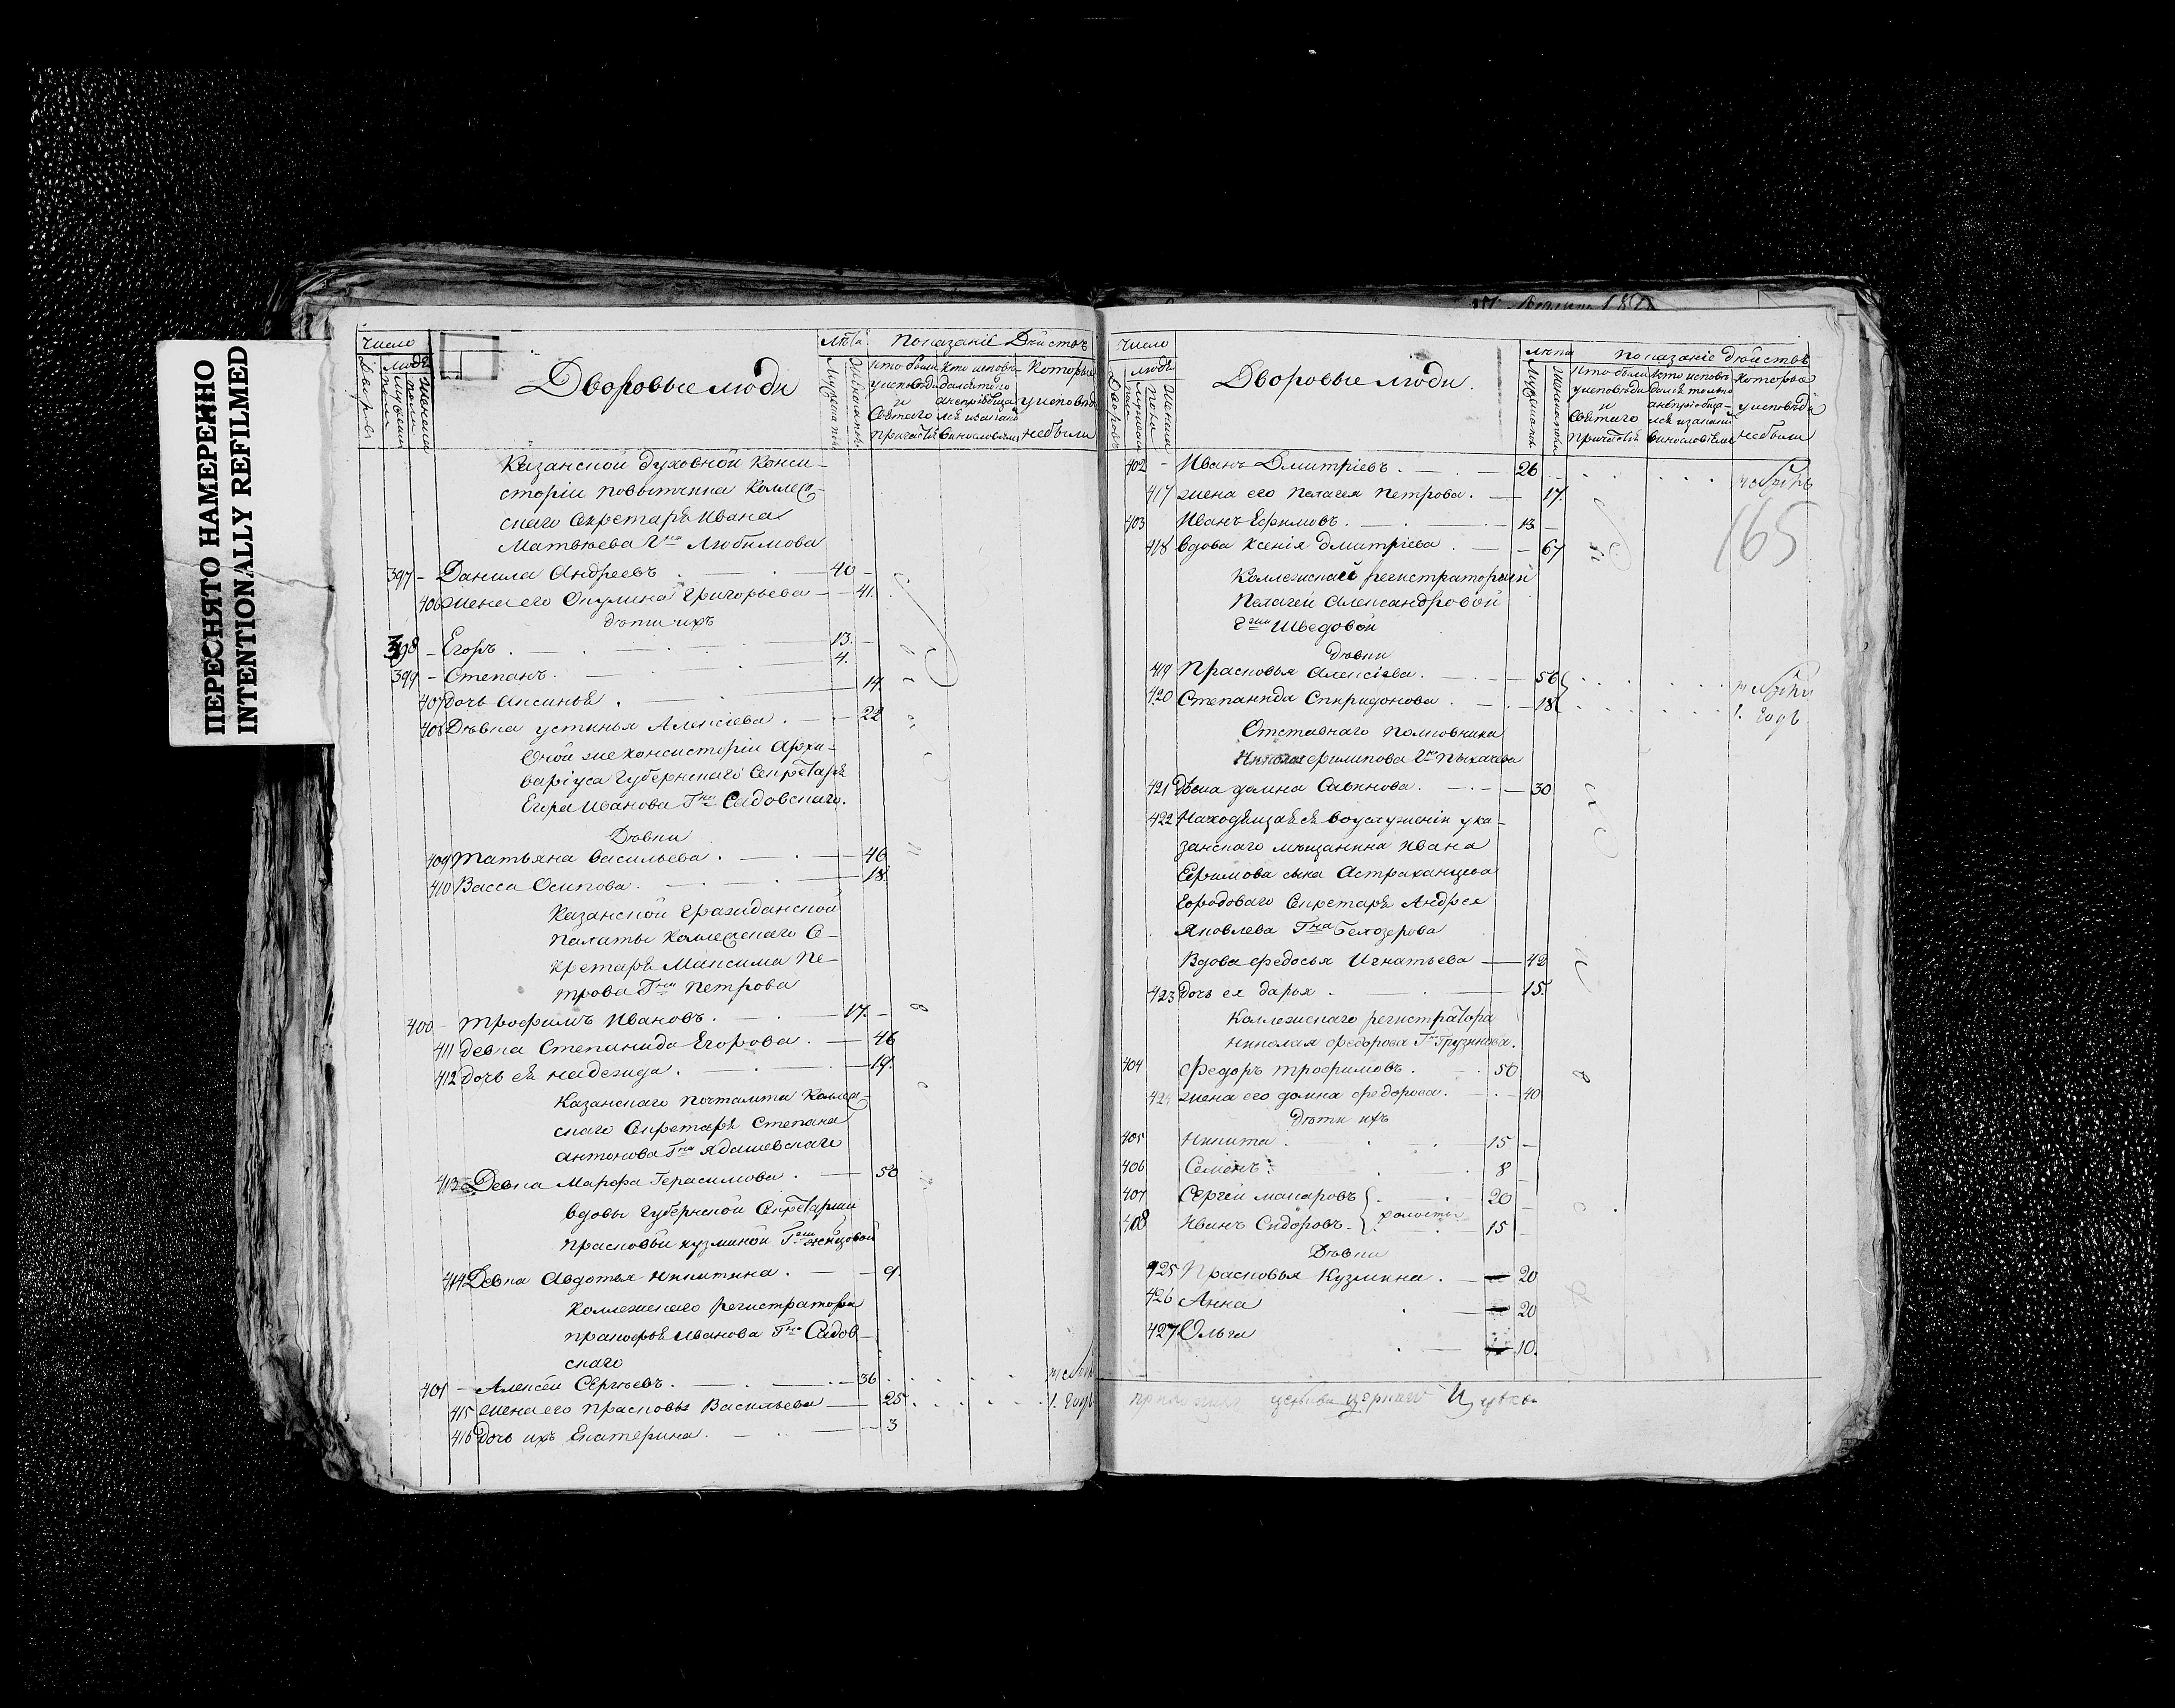 ПЕРЕСНЯТО НАМЕРЕННО
INTENTIONALLY REFILMED
Число
людъ
Дворовъ
Мужеска пола
Женска пола
Дворовые люди
Лѣта
Мужеска пола
Женска пола
Показаніе Дѣйствъ
Кто были у исповѣди и Святаго причастія
Которые у исповѣди небыли
Казанской духовной Конси-
сторіи повытчика Коллеж-
скаго Секретаря Ивана
Матвѣева Г-на Любимова
397 - Данила Андреевъ . 40 -
406 жена его Окулина Григорьева - 41.
дѣти ихъ
398 - Егоръ . 13. -
399 - Степанъ . 4.
407 дочь Аксинья . 14
408 Дѣвка устинья Алексіева . 22
Оной же Консисторіи Архи-
варіуса Губернскаго Секретаря
Егора Иванова Г-на Садовскаго.
Дѣвки
409 Татьяна Васильева . 46
410 Васса Осипова . 18.
Казанской Гражданской
палаты Коллежскаго Се-
кретаря Максима Пе-
трова Г-на Петрова
400 - Трофимъ Ивановъ . 17. -
411 девка Степанида Егорова . 46
412 дочь ея надежда . 19.
Казанскаго почтамта Коллеж-
скаго Секретаря Степана
антонова Г-на Ядашевскаго
413 Девка Марфа Герасимова . 50
вдовы Губернской Секретарши
прасковьи кузминой
414 Девка Авдотья Никитина . 9.
Коллежскаго регистратора
пракофья Иванова Г-на Садов-
скаго
401 - Алексѣй Сергѣевъ . 36
415 жена его прасковья Васильева 25
1. годъ
416 дочь ихъ Екатерина . 3
Число
людъ
Дворовъ
Мужеска пола
Женска пола
Дворовые люди.
лѣта
Мужеска пола
Женска пола
Показаніе дѣйствъ
Кто были у исповѣди и Святаго причастія
Которые у исповѣди небыли
402 - Иванъ Дмитріевъ . 26
417 жена его Пелагея Петрова . 17.
165
403 Иванъ Ефимовъ . 13 -
418 вдова Ксенія Дмитріева . - 67
Коллежской регистраторши
Пелагеи Александровой
Г-жи Шведовой
Дѣвки
419 Прасковья Алексіева . 56
420 Степанида Спиридонова . 18
1. годъ
Отставнаго полковника
филипова Г-на Пыхачева
421 Дѣвка домна Савинова . 30
422 Находящаяся во услуженіи у ка-
занскаго мѣщанина Ивана
Ефимова сына Астраханцева
Городоваго Секретаря Андрея
Яковлева Г-на Белозерова
Вдова федосья Игнатьева 42
423 дочь ея дарья . 15.
Коллежскаго регистратора
николая федорова Г-на Грузинова.
404 федоръ трофимовъ . 50
424 жена его домна федорова . 40
дѣти ихъ
405 Никита . 15 -
406 Семенъ . 8
407 Сергей макаровъ . 20 -
408 Иванъ Сидоровъ . холосты 15 -
Дѣвки
425 Прасковья Кузмина . 20
426 Анна 20
427 Ольга 10.